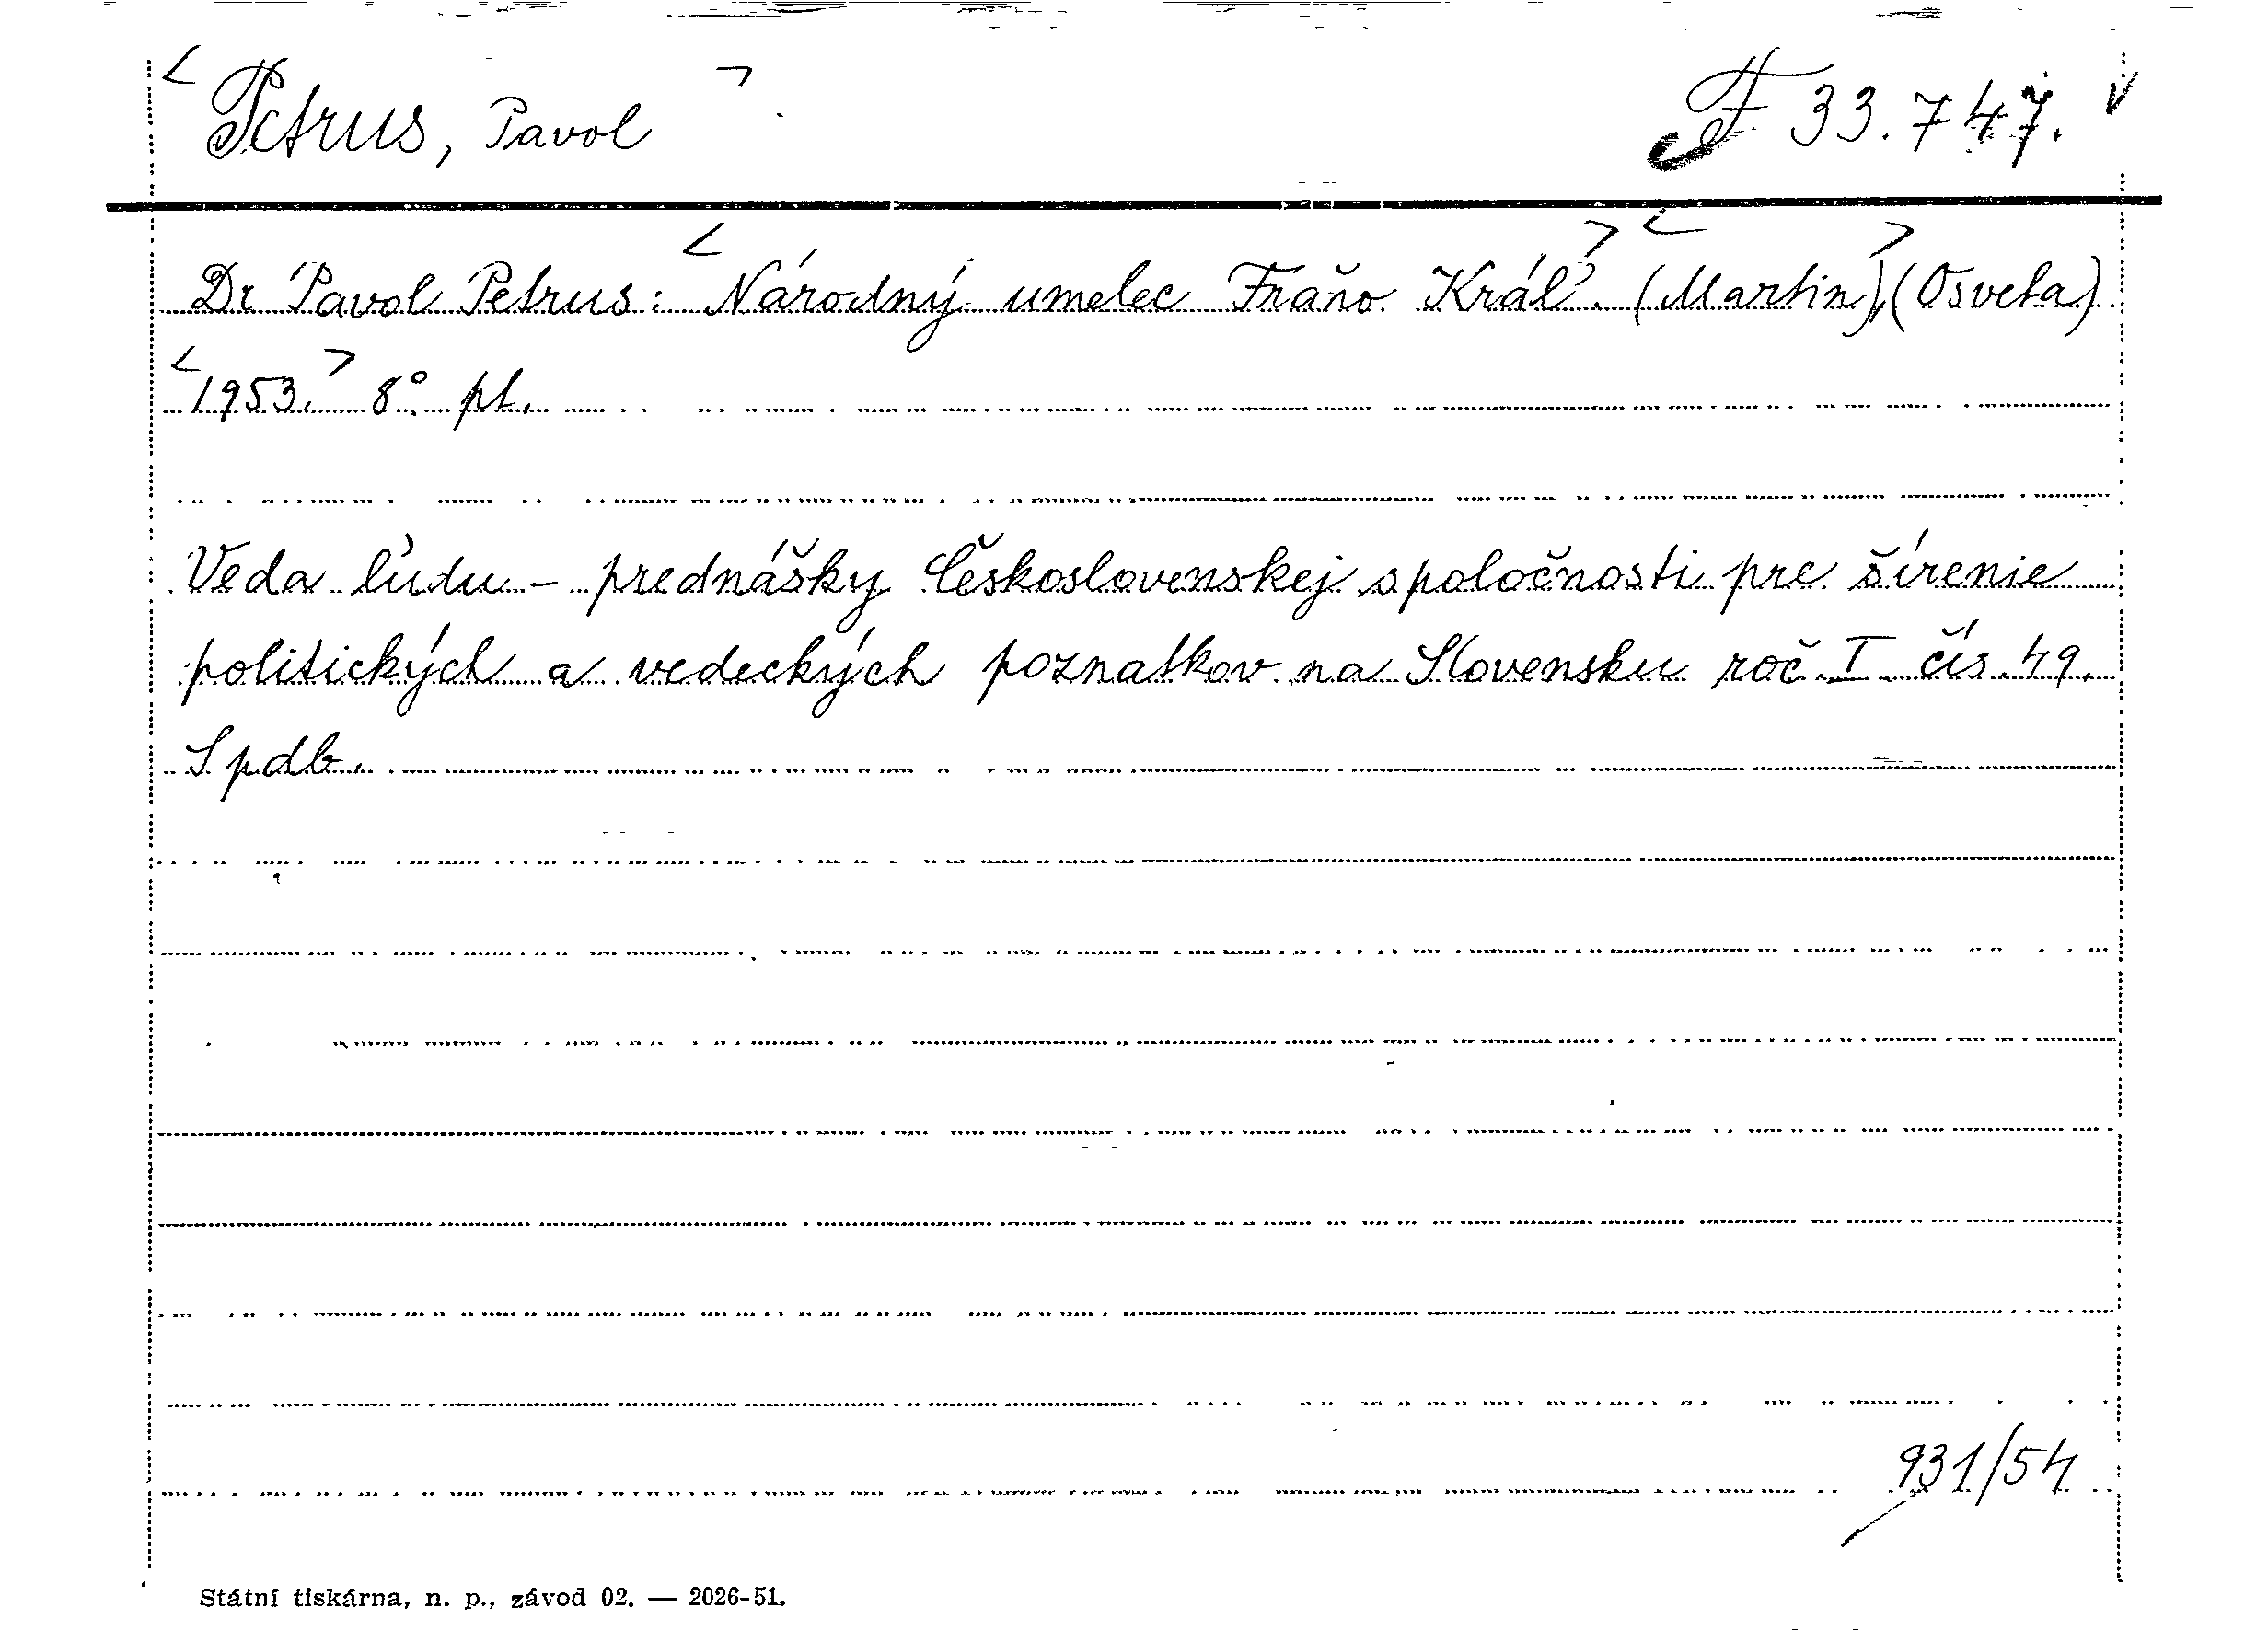 < Petrus, Pavol > F 33.747. v
Dr Pavol Petrus: < Národný umelec Fráňo Kráľ. > < (Martin), > (Osveta)
< 1953. > 8° pl.
Veda ľudu – prednášky Československej spoločnosti pre šírenie
politických a vedeckých poznatkov na Slovensku roč. I čís. 49.
S pdb.
931/54
Státní tiskárna, n. p., závod 02. — 2026-51.